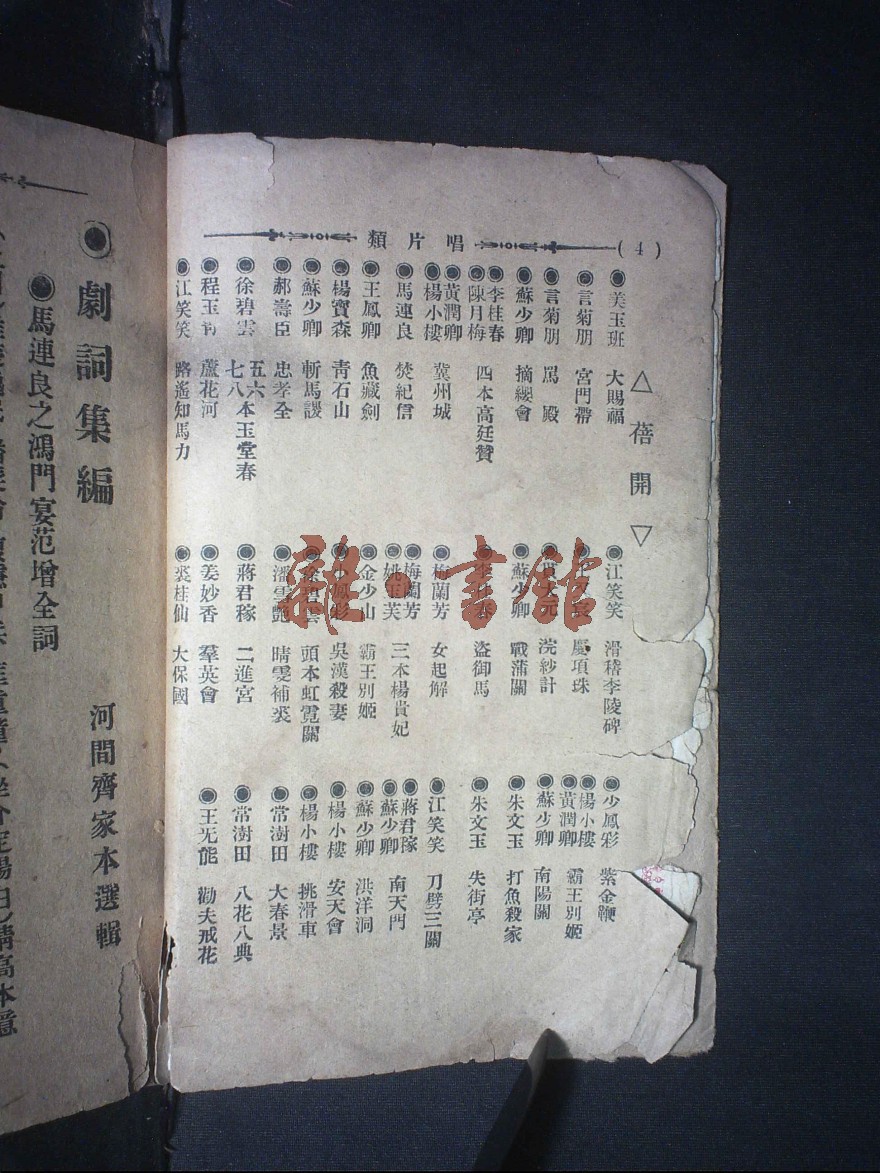 (4)
唱片類
△蓓開▽
美玉班 大賜福
言菊朋 宮門帶
言菊朋 罵殿
蘇少卿 摘纓會
李桂春
陳月梅 四本高廷贊
黃潤卿
楊小樓 冀州城
馬連良 焚紀信
王鳳卿 魚藏劍
楊寶森 青石山
蘇少卿 斬馬謖
郝壽臣 忠孝全
徐碧雲 五六七八本玉堂春
程玉菁 蘆花河
江笑笑 路遙知馬力
江笑笑 滑稽李陵碑
慶項珠
浣紗計
蘇少卿 戰蒲關
李桂春 盜御馬
梅蘭芳 女起解
梅蘭芳
姚玉芙 三本楊貴妃
金少山 霸王別姬
小鳳彩 吳漢殺妻
徐碧雲 頭本虹霓關
潘雪艷 晴雯補裘
蔣君稼 二進宮
姜妙香 羣英會
裘桂仙 大保國
少鳳彩 紫金鞭
楊小樓
黃潤卿 霸王別姬
蘇少卿 南陽關
朱文玉 打魚殺家
朱文玉 失街亭
江笑笑 刀劈三關
蔣君稼
蘇少卿 南天門
蘇少卿 洪洋洞
楊小樓 安天會
楊小樓 挑滑車
常澍田 大春景
常澍田 八花八典
王无能 勸夫戒花
劇詞集編
河間齊家本選輯
馬連良之鴻門宴范增全詞
雜·書館